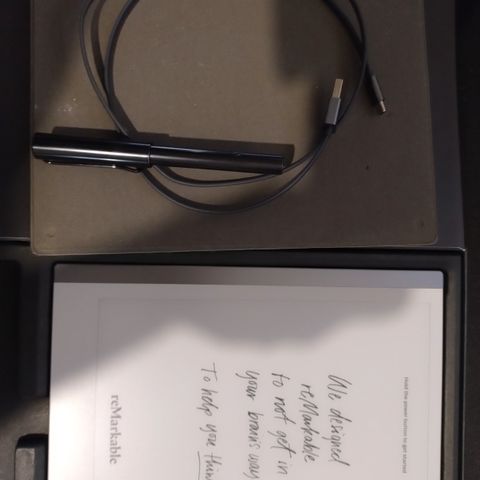 Hold the power button to get started
We designed
reMarkable
to not get in
your brain's way
To help you think
reMarkable